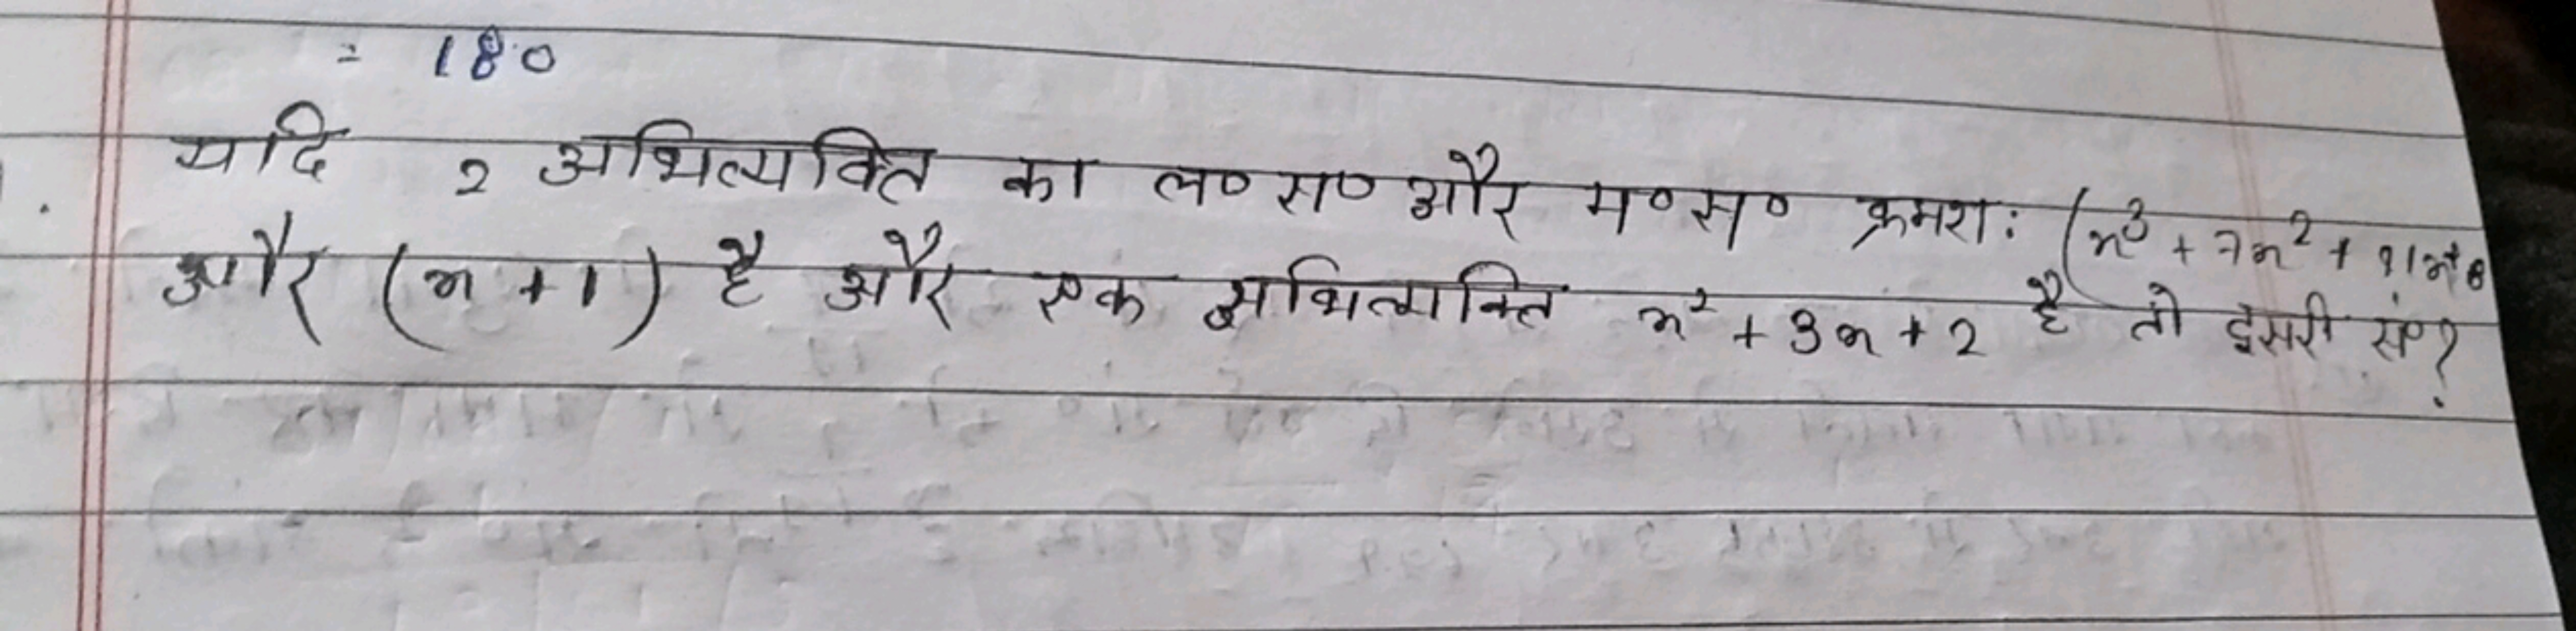 = 180
यदि 2 अभिव्यक्ति का ल० स० और म० स० क्रमश: (x³ + 7x² + 11x+8
और (x + 1) है और एक अभिव्यक्ति x² + 3x + 2 है तो दूसरी सं०?